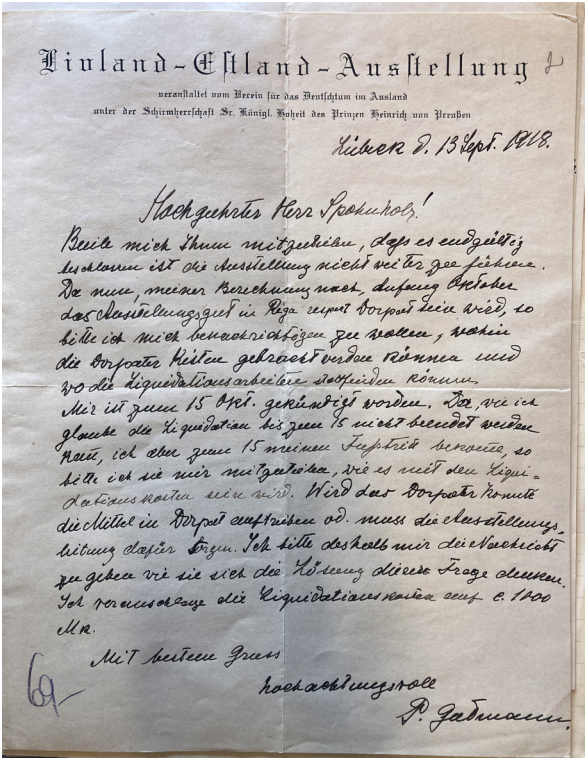 Livland-Estland-Ausstellung
veranstaltet vom Verein für das Deutschtum im Ausland
unter der Schirmherrschaft Sr. Königl. Hoheit des Prinzen Heinrich von Preußen
2
Lübeck d. 13 Sept. 1918.
Hochgeehrter Herr Spohnholz!
Beeile mich Ihnen mitzuteilen, dass es endgültig
beschlossen ist die Ausstellung nicht weiter zu führen.
Da nun, meiner Berechnung nach, Anfang Oktober
das Ausstellungsgut in Riga respect Dorpat sein wird, so
bitte ich mich benachrichtigen zu wollen, wohin
die Dorpater Kisten gebracht werden können und
wo die Liquidationsarbeiten stattfinden können.
Mir ist zum 15 Okt. gekündigt worden. Da, wie ich
glaube die Liquidation bis zum 15 nicht beendet werden
kann, ich aber zum 15 meinen bekome, so
bitte ich sie mir mitzuteilen, wie es mit den Liqui-
dationskosten sein wird. Wird das Dorpater Komite
die Mittel in Dorpat auftreiben od. muss die Ausstellungs-
leitung dafür sorgen. Ich bitte deshalb mir die Nachricht
zu geben wie sie sich die Lösung dieser Frage denken.
Ich veranschlage die Liquidationskosten auf c. 1000
Mk.
Mit bestem Gruss
hochachtungsvoll
69